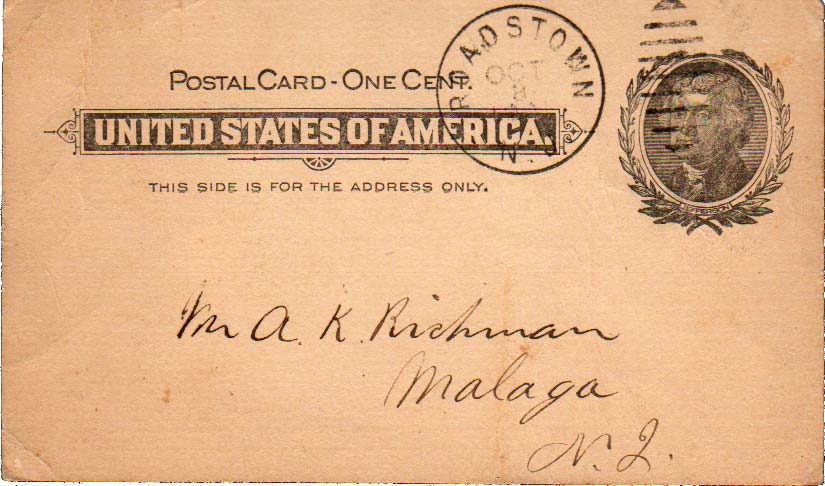 ROADSTOWN
OCT
8
N.J.
POSTAL CARD - ONE CENT.
UNITED STATES OF AMERICA.
THIS SIDE IS FOR THE ADDRESS ONLY.
JEFFERSON
M A. K. Richman
Malaga
N. J.